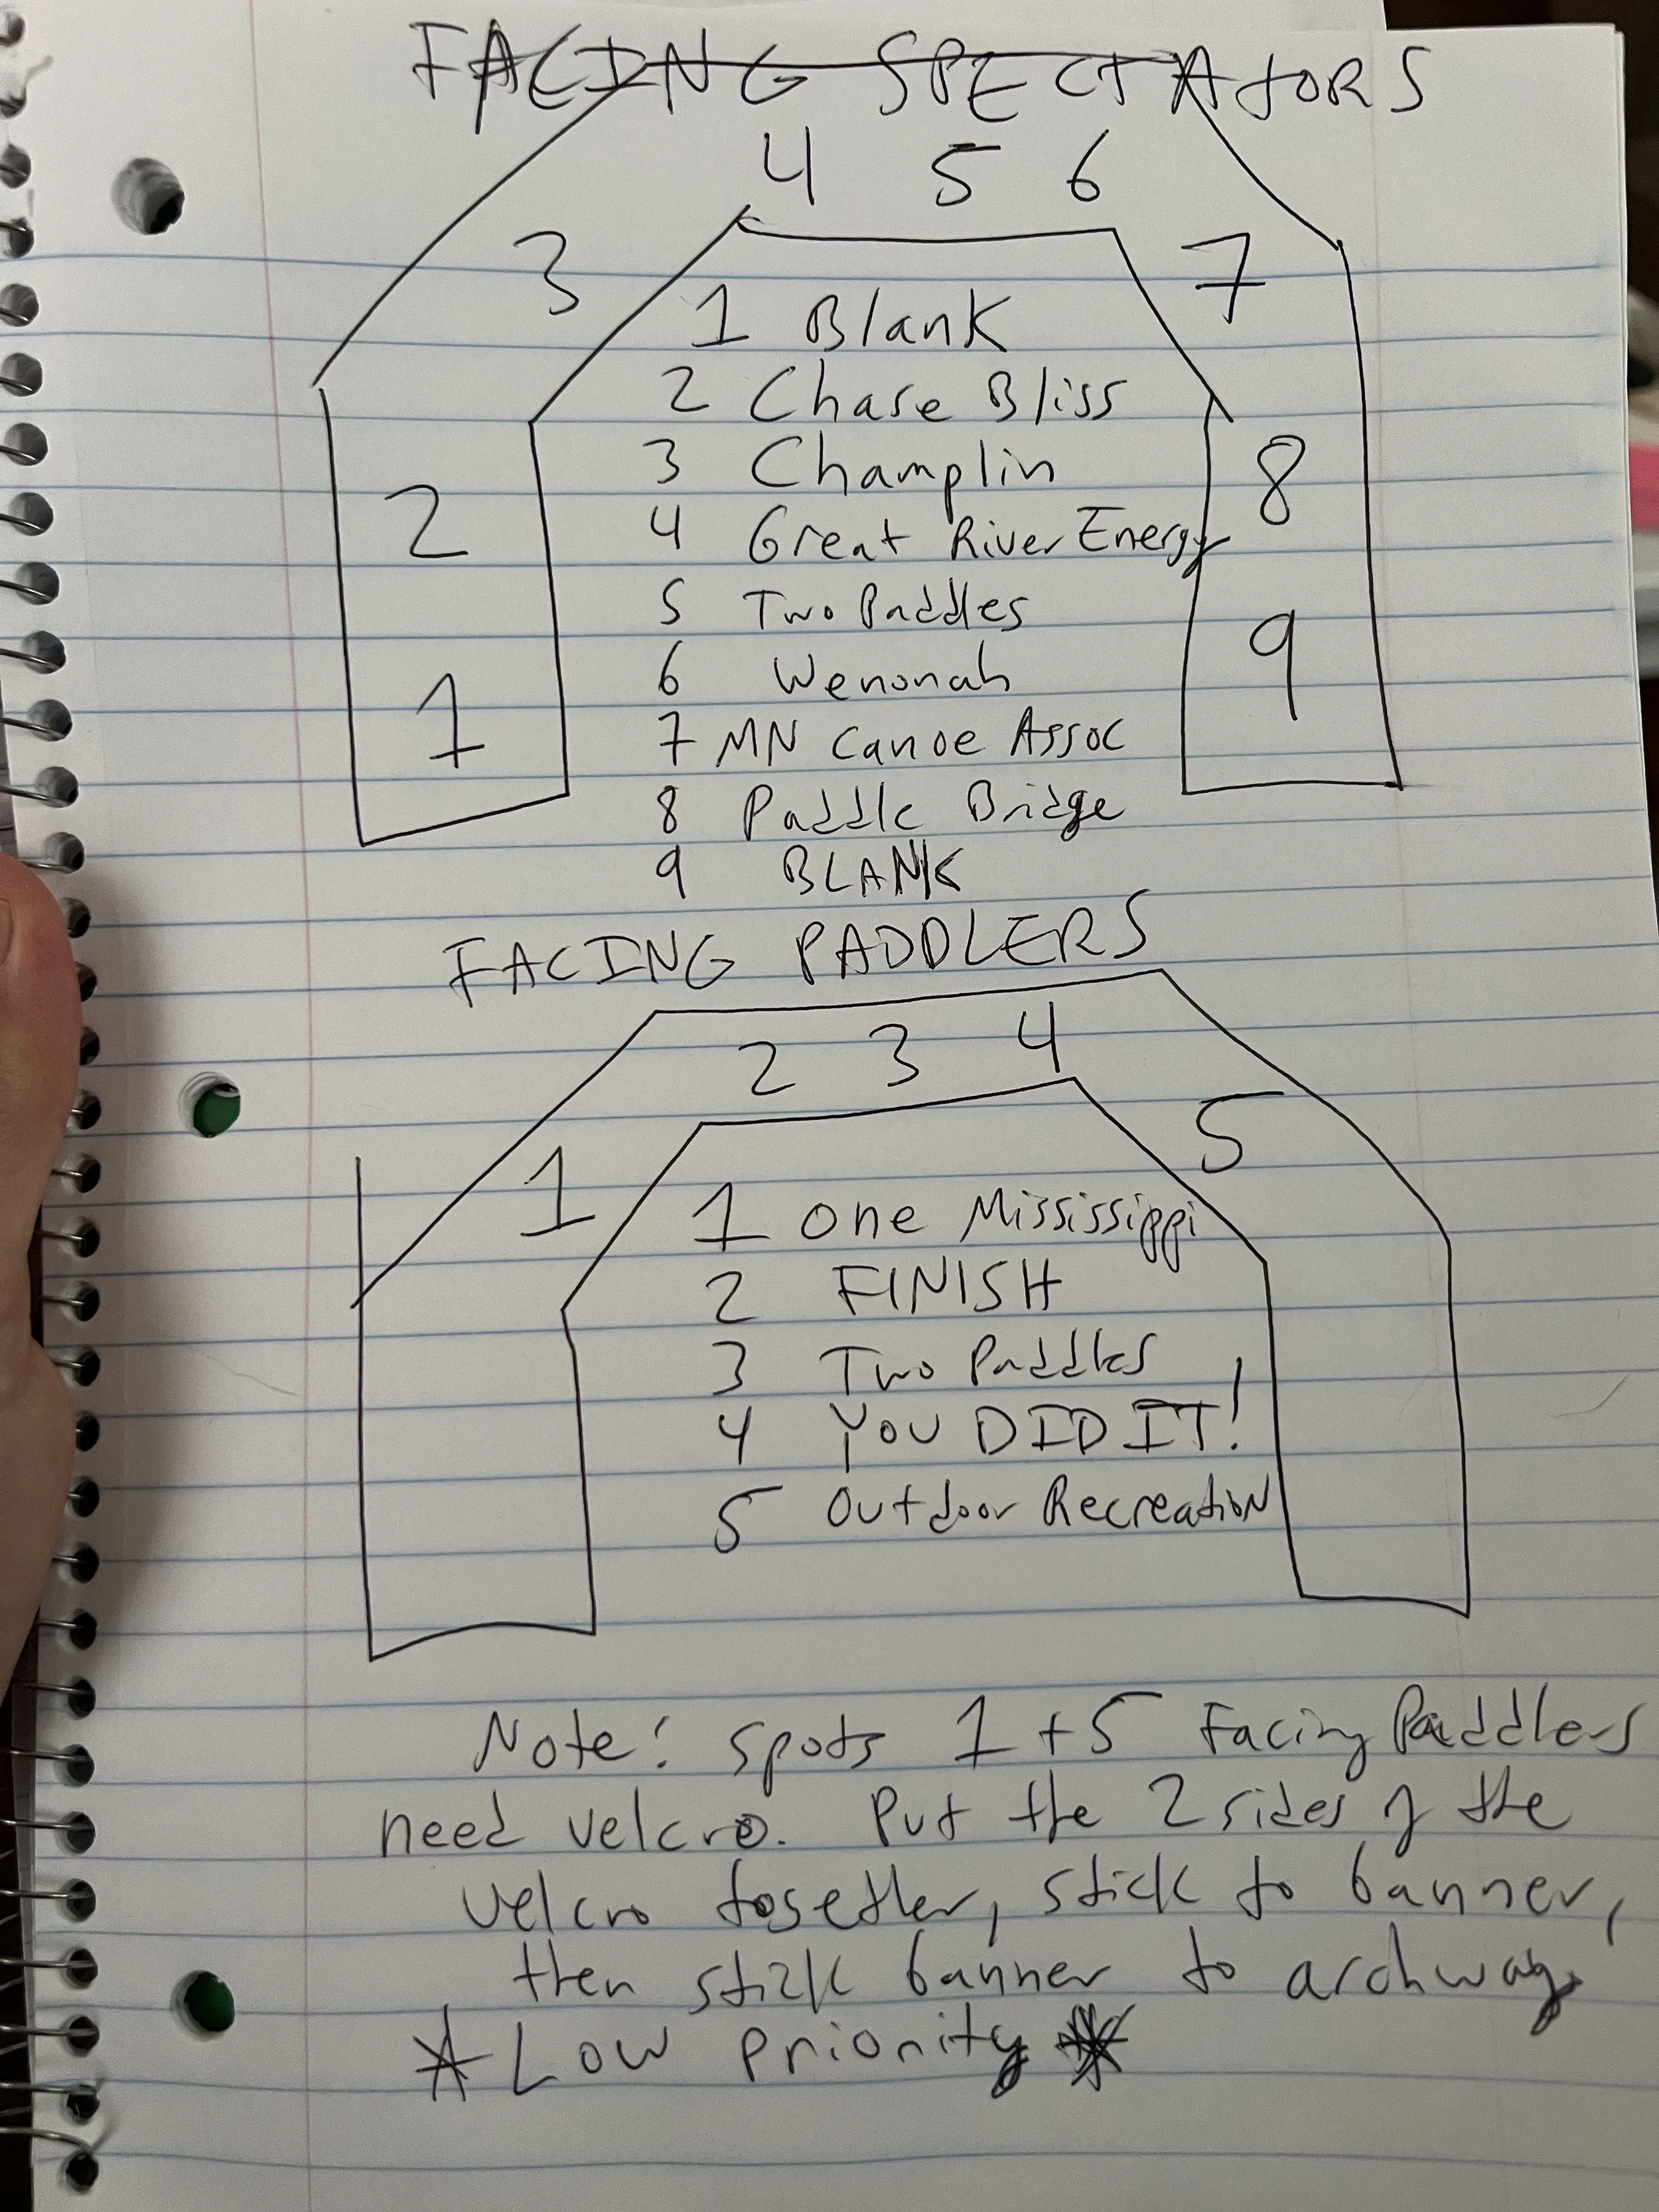 FACING SPECTATORS
4 5 6
3 7
1 Blank
2 Chase Bliss
3 Champlin
8
4 Great River Energy
2
5 Two Paddles
9
6 Wenonah
1
7 MN Canoe Assoc
8 Paddle Bridge
9 BLANK
FACING PADDLERS
2 3 4
1 5
1 One Mississippi
2 FINISH
3 Two Paddles
4 YOU DID IT!
5 Outdoor Recreation
Note: spots 1 + 5 Facing Paddlers
need velcro. Put the 2 sides of the
velcro together, stick to banner,
then stick banner to archway
* Low priority *